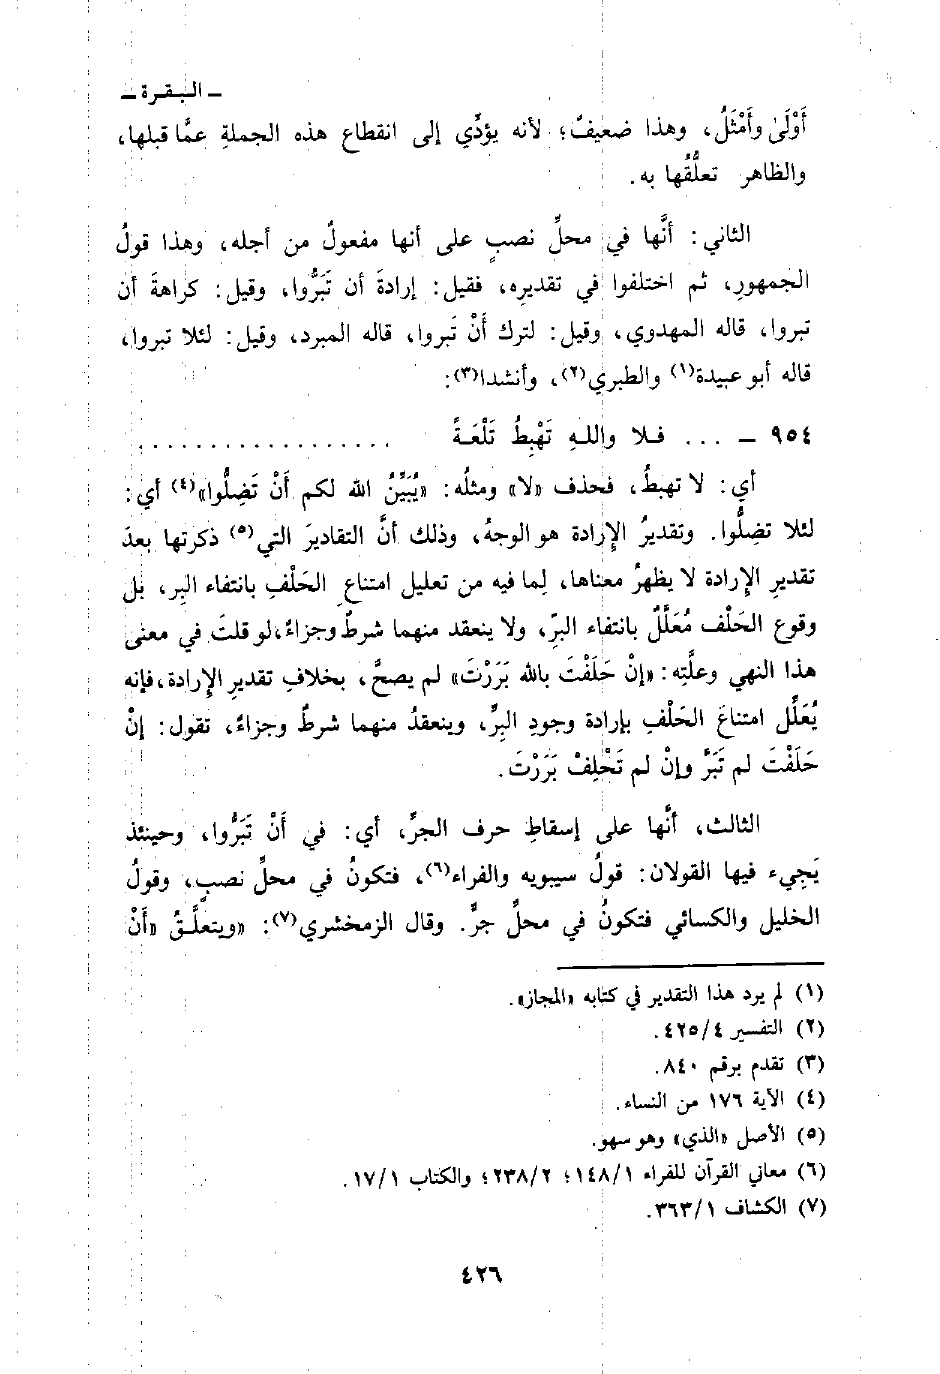 ـ البقرة ـ
أَوْلَىٰ وأَمْثَلُ، وهذا ضعيفٌ؛ لأنه يؤدِّي إلى انقطاع هذه الجملةِ عمَّا قبلها،
والظاهر تعلُّقُها به.
الثاني: أنَّها في محلِّ نصبٍ على أنها مفعولٌ من أجله، وهذا قولُ
الجمهورِ، ثم اختلفوا في تقديرِه، فقيل: إرادةَ أن تَبَرُّوا، وقيل: كراهةَ أن
تبروا، قاله المهدوي، وقيل: لترك أَنْ تَبروا، قاله المبرد، وقيل: لئلا تبروا،
قاله أبو عبيدة(١) والطبري(٢)، وأنشدا(٣):
٩٥٤ ـ ... فـلا واللـهِ تَهْبِطُ تَلْعَـةً . . . . . . . . . . . . . . . . .
أي: لا تهبطُ، فحذف «لا» ومثلُه: «يُبَيِّنُ الله لكم أَنْ تَضِلُّوا»(٤) أي:
لئلا تضِلُّوا. وتقديرُ الإِرادة هو الوجهُ، وذلك أنَّ التقاديرَ التي(٥) ذكرتها بعدَ
تقديرِ الإِرادة لا يظهرُ معناها، لِما فيه من تعليل امتناعِ الحَلْفِ بانتفاء البِر، بل
وقوع الحَلْف مُعَلَّلٌ بانتفاء البرِّ، ولا ينعقد منهما شرطٌ وجزاءٌ، لو قلتَ في معنى
هذا النهي وعلَّتِه: «إنْ حَلَفْتَ بالله بَرَرْتَ» لم يصحَّ، بخلافِ تقديرِ الإِرادة، فإنه
يُعَلَّل امتناعَ الحَلْفِ بإرادة وجودِ البِرِّ، وينعقدُ منهما شرطٌ وجزاءٌ، تقول: إنْ
حَلَفْتَ لم تَبَرَّ وإنْ لم تَحْلِفْ بَرَرْتَ.
الثالث، أنَّها على إسقاطِ حرف الجرِّ، أي: في أَنْ تَبَرُّوا، وحينئذ
يَجيء فيها القولان: قولُ سيبويه والفراء(٦)، فتكونُ في محلِّ نصبٍ، وقولُ
الخليل والكسائي فتكونُ في محلِّ جرٍّ. وقال الزمخشري(٧): «ويتعلَّـقُ «أَنْ
(١) لم يرد هذا التقدير في كتابه «المجاز».
(٢) التفسير ٤/٤٢٥.
(٣) تقدم برقم ٨٤٠.
(٤) الآية ١٧٦ من النساء.
(٥) الأصل «الذي» وهو سهو.
(٦) معاني القرآن للفراء ١/١٤٨؛ ٢/٢٣٨؛ والكتاب ١/١٧.
(٧) الكشاف ١/٣٦٣.
٤٢٦